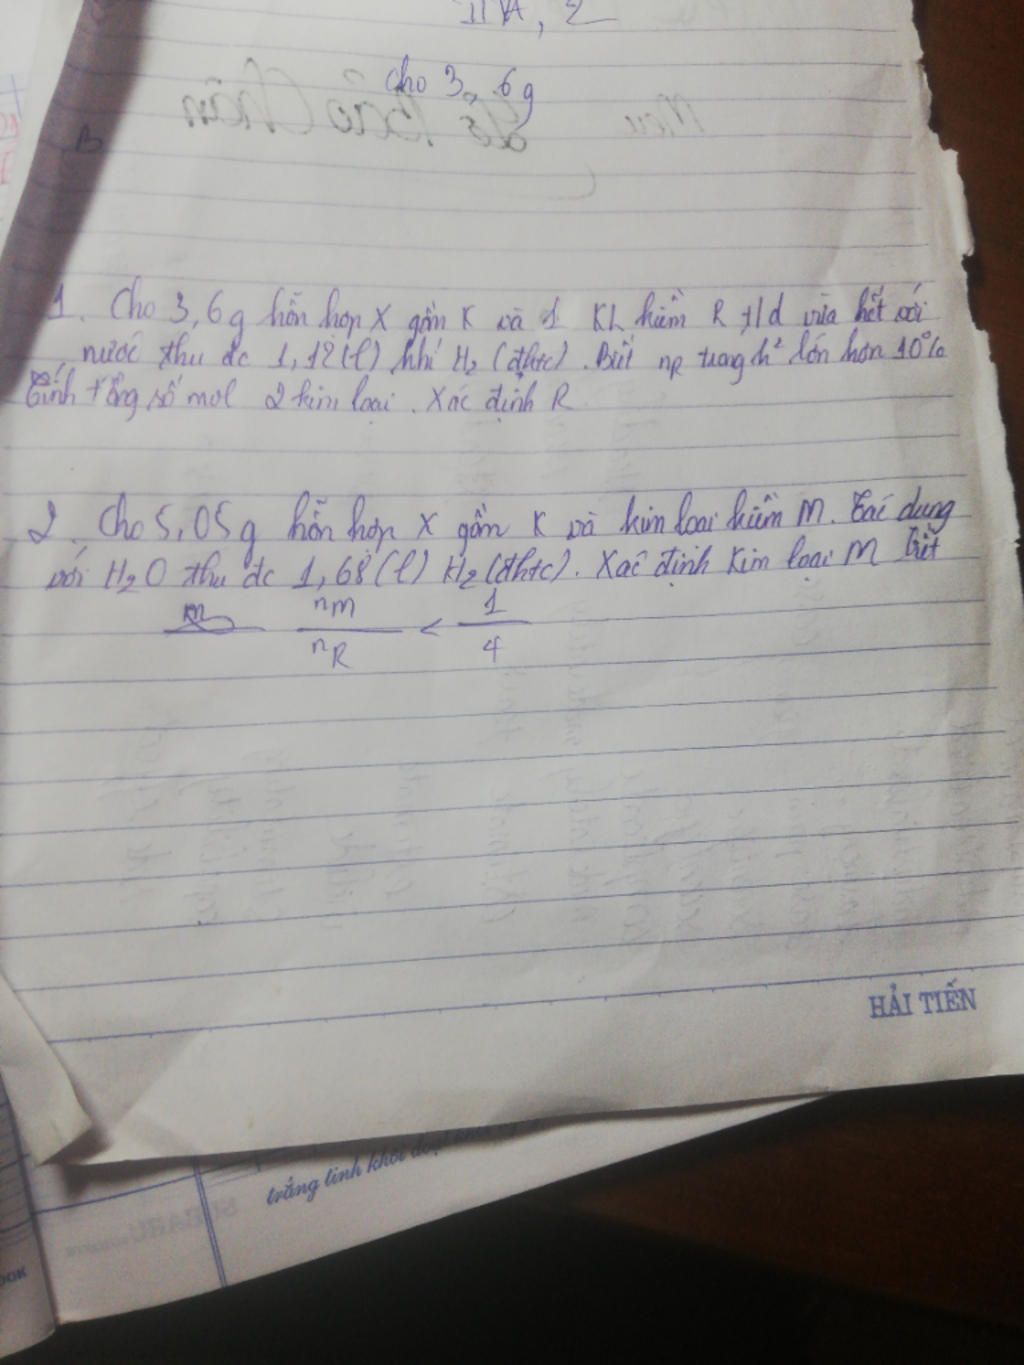 IIA, 2
cho 3, 6g
B
1. Cho 3,6g hỗn hợp X gồm K và 1 KL kiềm R t/d vừa hết với
nước thu đc 1,12(l) khí H₂ (đktc). Biết nR trong h² lớn hơn 10%
tính tổng số mol 2 kim loại. Xác định R
2. Cho 5,05g hỗn hợp X gồm K và kim loại kiềm M. Tác dụng
với H₂O thu đc 1,68(l) H₂(đktc). Xác định Kim loại M biết
nM / nR < 1 / 4
HẢI TIẾN
trắng tinh khôi
SUBARU
OOK